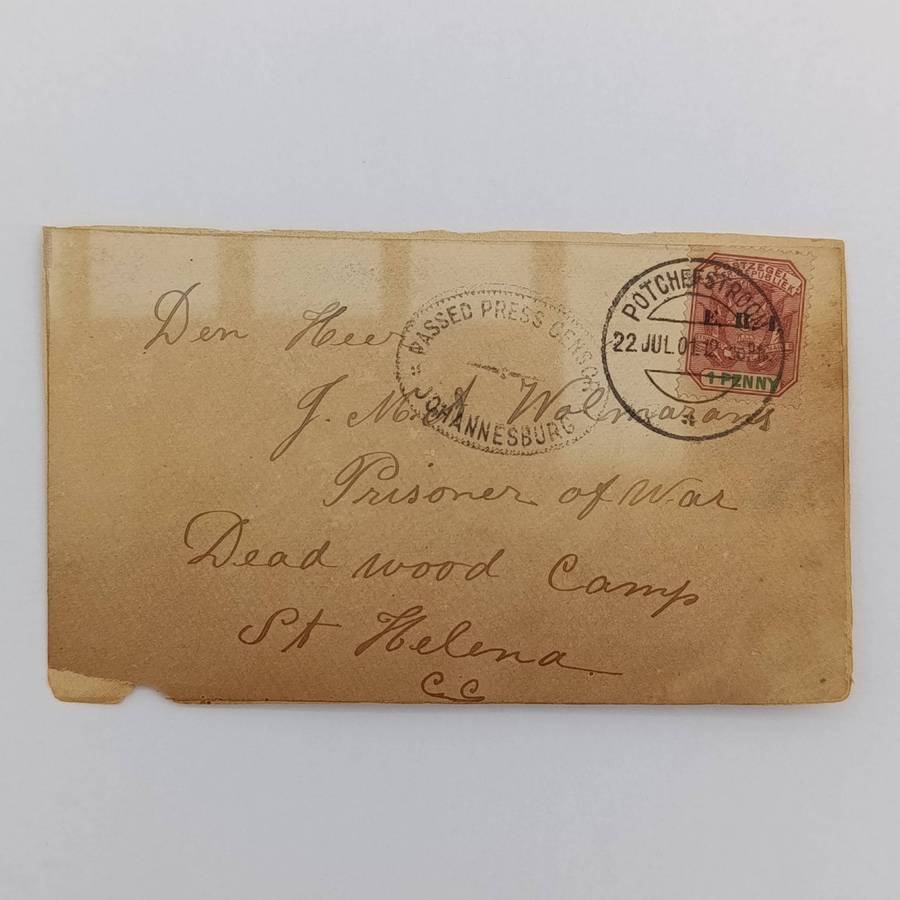 POSTZEGEL
E. R. I.
1 PENNY
POTCHEFSTROOM
22 JUL 01
PASSED PRESS CENSOR
JOHANNESBURG
Den Heer
J. M. A. Wolmarans
Prisoner of War
Dead wood Camp
St Helena
C.C